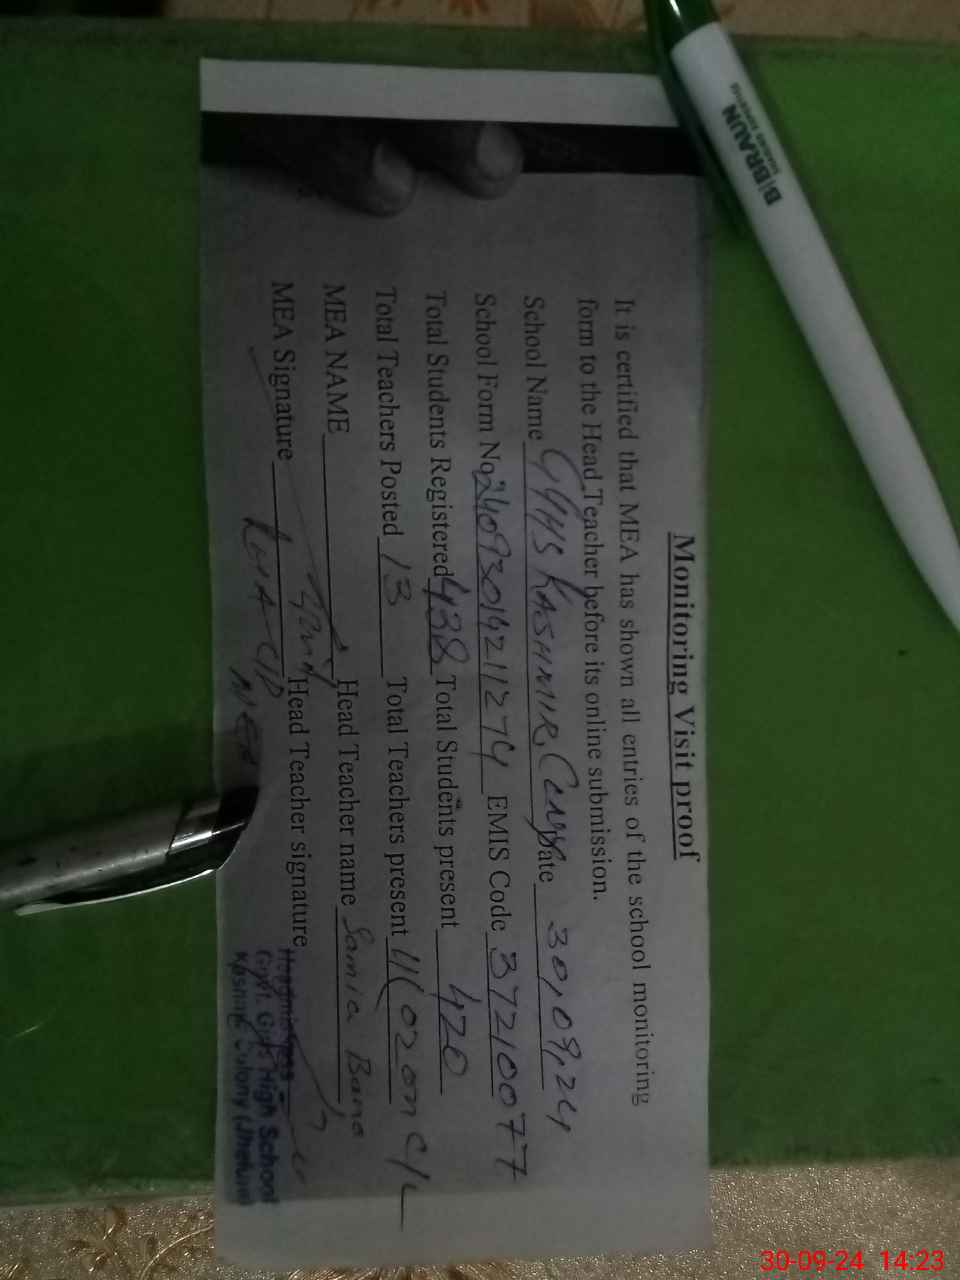 Monitoring Visit proof
It is certified that MEA has shown all entries of the school monitoring
form to the Head Teacher before its online submission.
School Name GGHS KASHMIR Date 30.09.24
School Form No 2409301421127 EMIS Code 37210077
Total Students Registered 438 Total Students present 420
Total Teachers Posted 13 Total Teachers present 11(02 on C/L
MEA NAME Head Teacher name Samia Bano
MEA Signature Head Teacher signature
MEA
Headmistress
Govt. Girls High School
Kashmir Colony (Jhelum)
B|BRAUN
SHARING EXPERTISE
30-09-24 14:23